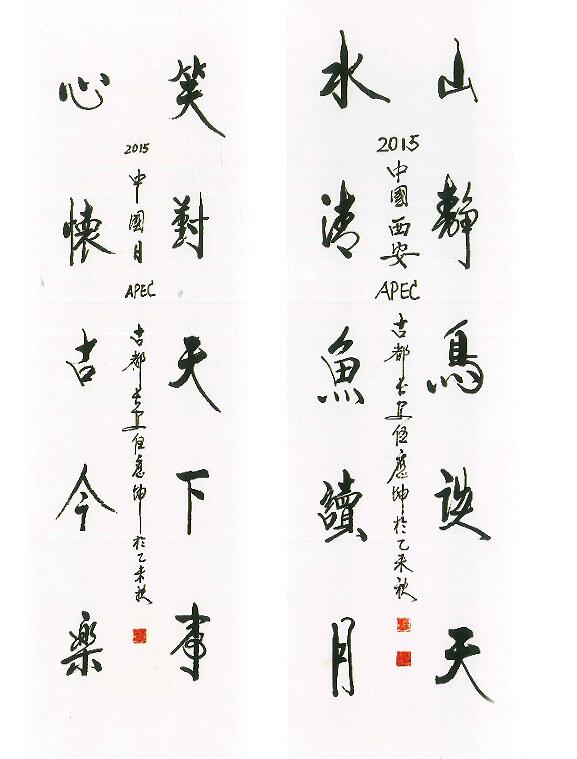 山靜鳥談天
2015 中國西安 APEC 古都長安應坤於乙未秋
水清魚讀月
笑對天下事
2015 中國日 APEC 古都長安應坤於乙未秋
心懷古今楽